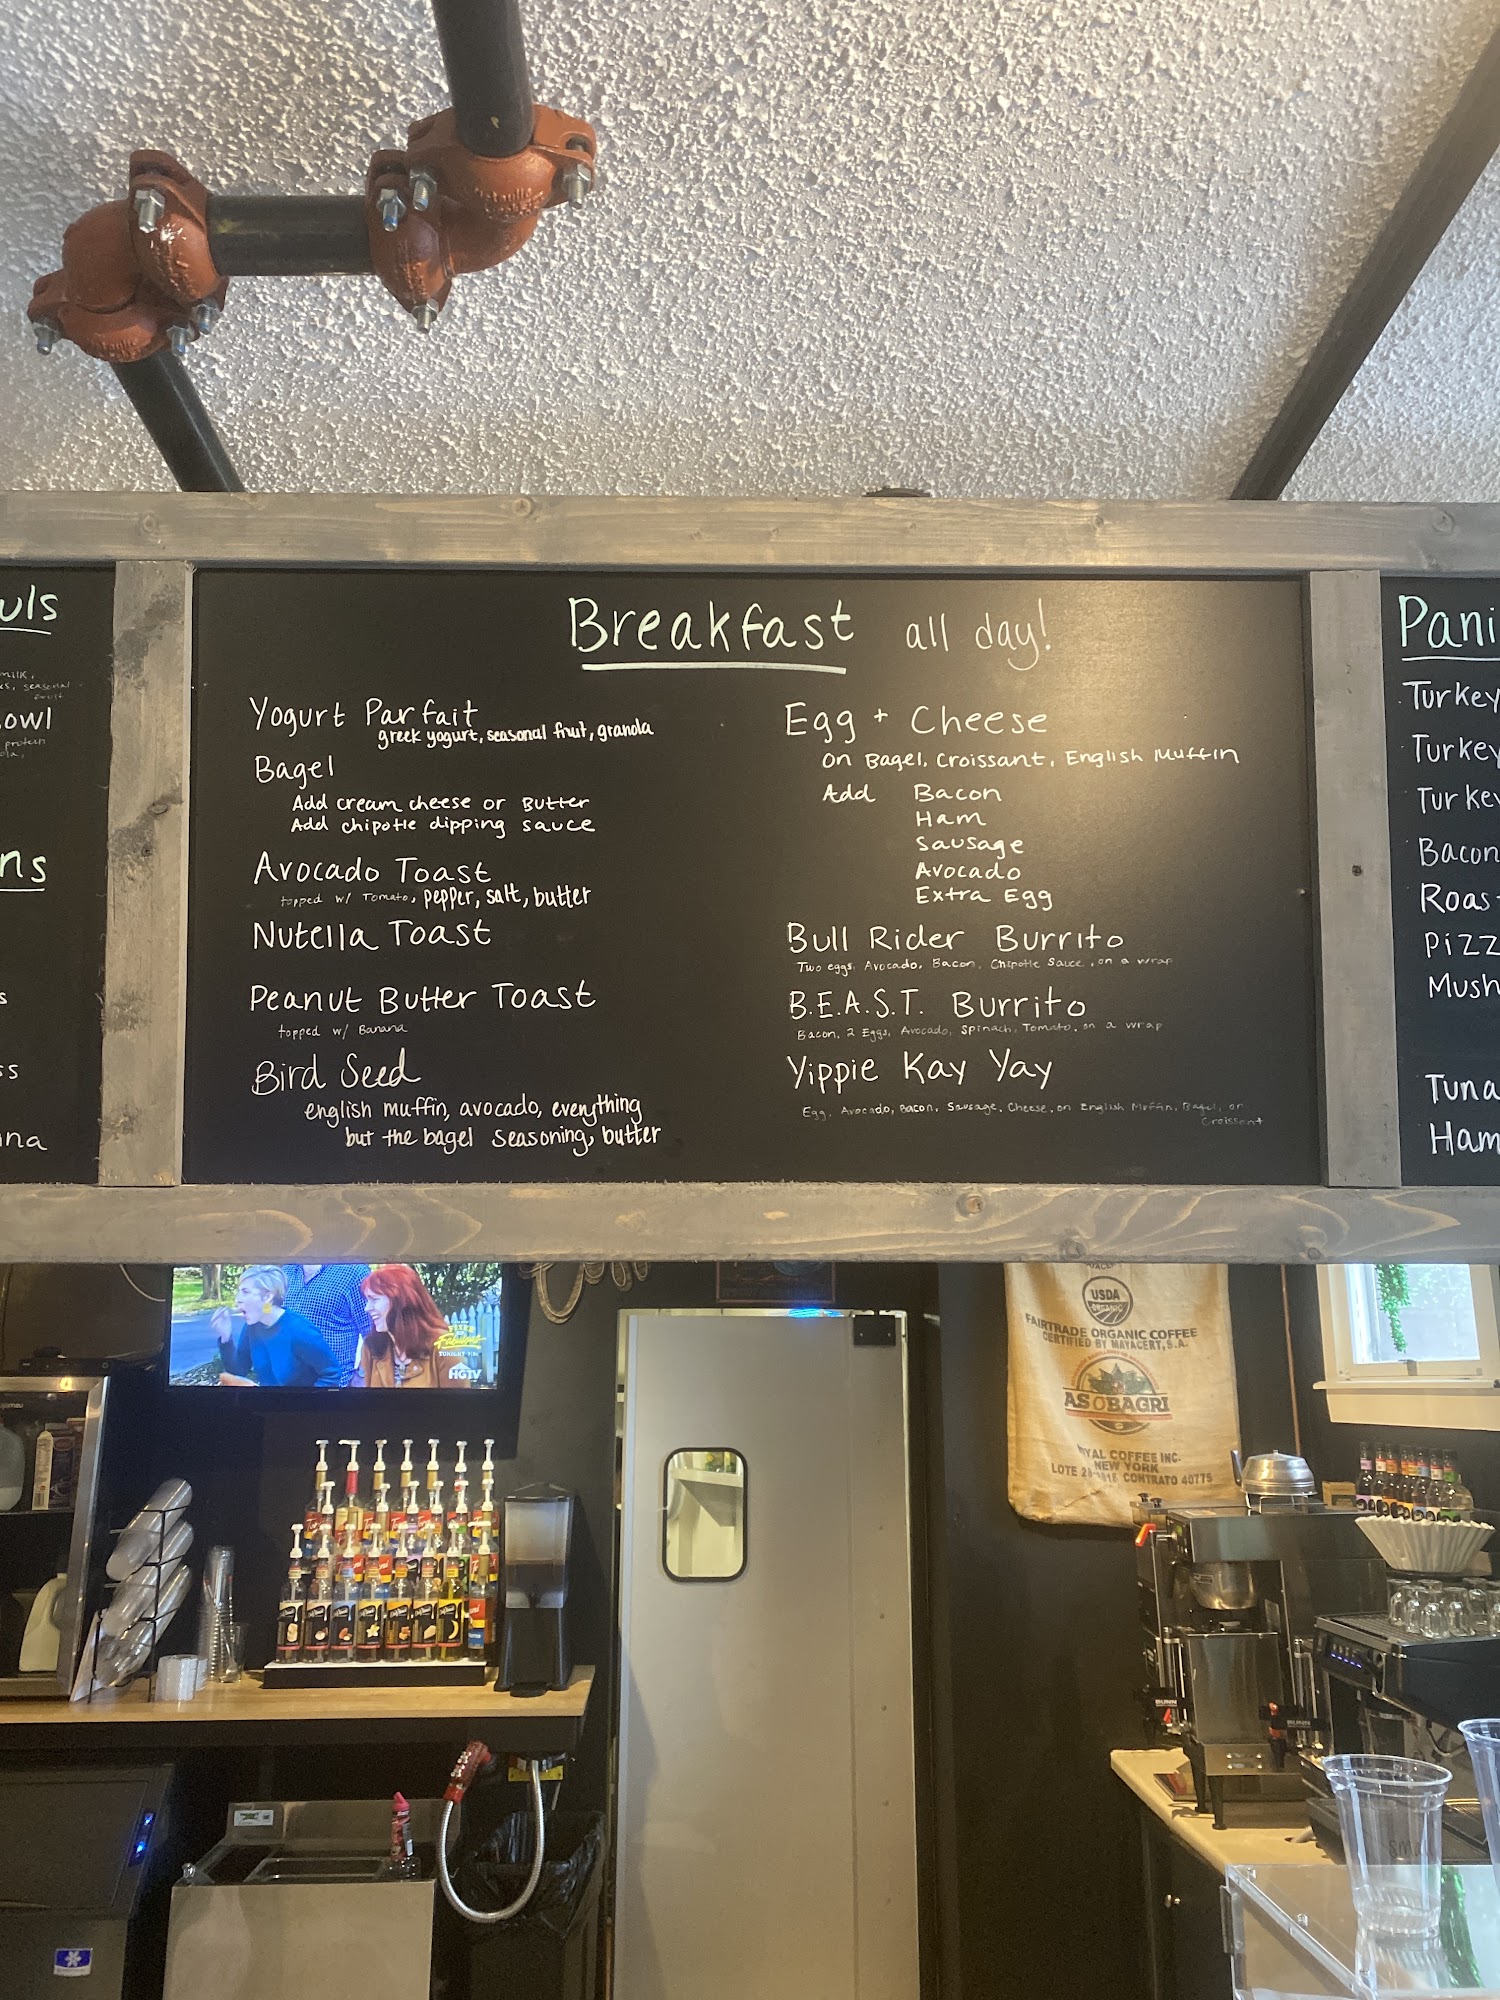 Breakfast all day!
Yogurt Parfait
greek yogurt, seasonal fruit, granola
Bagel
Add cream cheese or Butter
Add chipotle dipping sauce
Avocado Toast
topped w/ Tomato, pepper, salt, butter
Nutella Toast
Peanut Butter Toast
topped w/ Banana
Bird Seed
english muffin, avocado, everything
but the bagel seasoning, butter
Egg + Cheese
on Bagel, Croissant, English Muffin
Add Bacon
Ham
Sausage
Avocado
Extra Egg
Bull Rider Burrito
Two eggs, Avocado, Bacon, Chipotle Sauce, on a wrap
B.E.A.S.T. Burrito
Bacon, 2 Eggs, Avocado, Spinach, Tomato, on a wrap
Yippie Kay Yay
Egg, Avocado, Bacon, Sausage, Cheese, on English Muffin, Bagel, or
Croissant
uls
milk,
seasonal
fruit
owl
protein
ns
s
ss
na
Pani
Turkey
Turkey
Turkey
Bacon
Roast
Pizz
Mush
Tuna
Ham
Fabulous
HGTV
USDA
ORGANIC
FAIRTRADE ORGANIC COFFEE
CERTIFIED BY MAYACERT, S.A.
ASOBAGRI
COFFEE INC.
NEW YORK
LOTE CONTRATO 40775
BUNN
BUNN